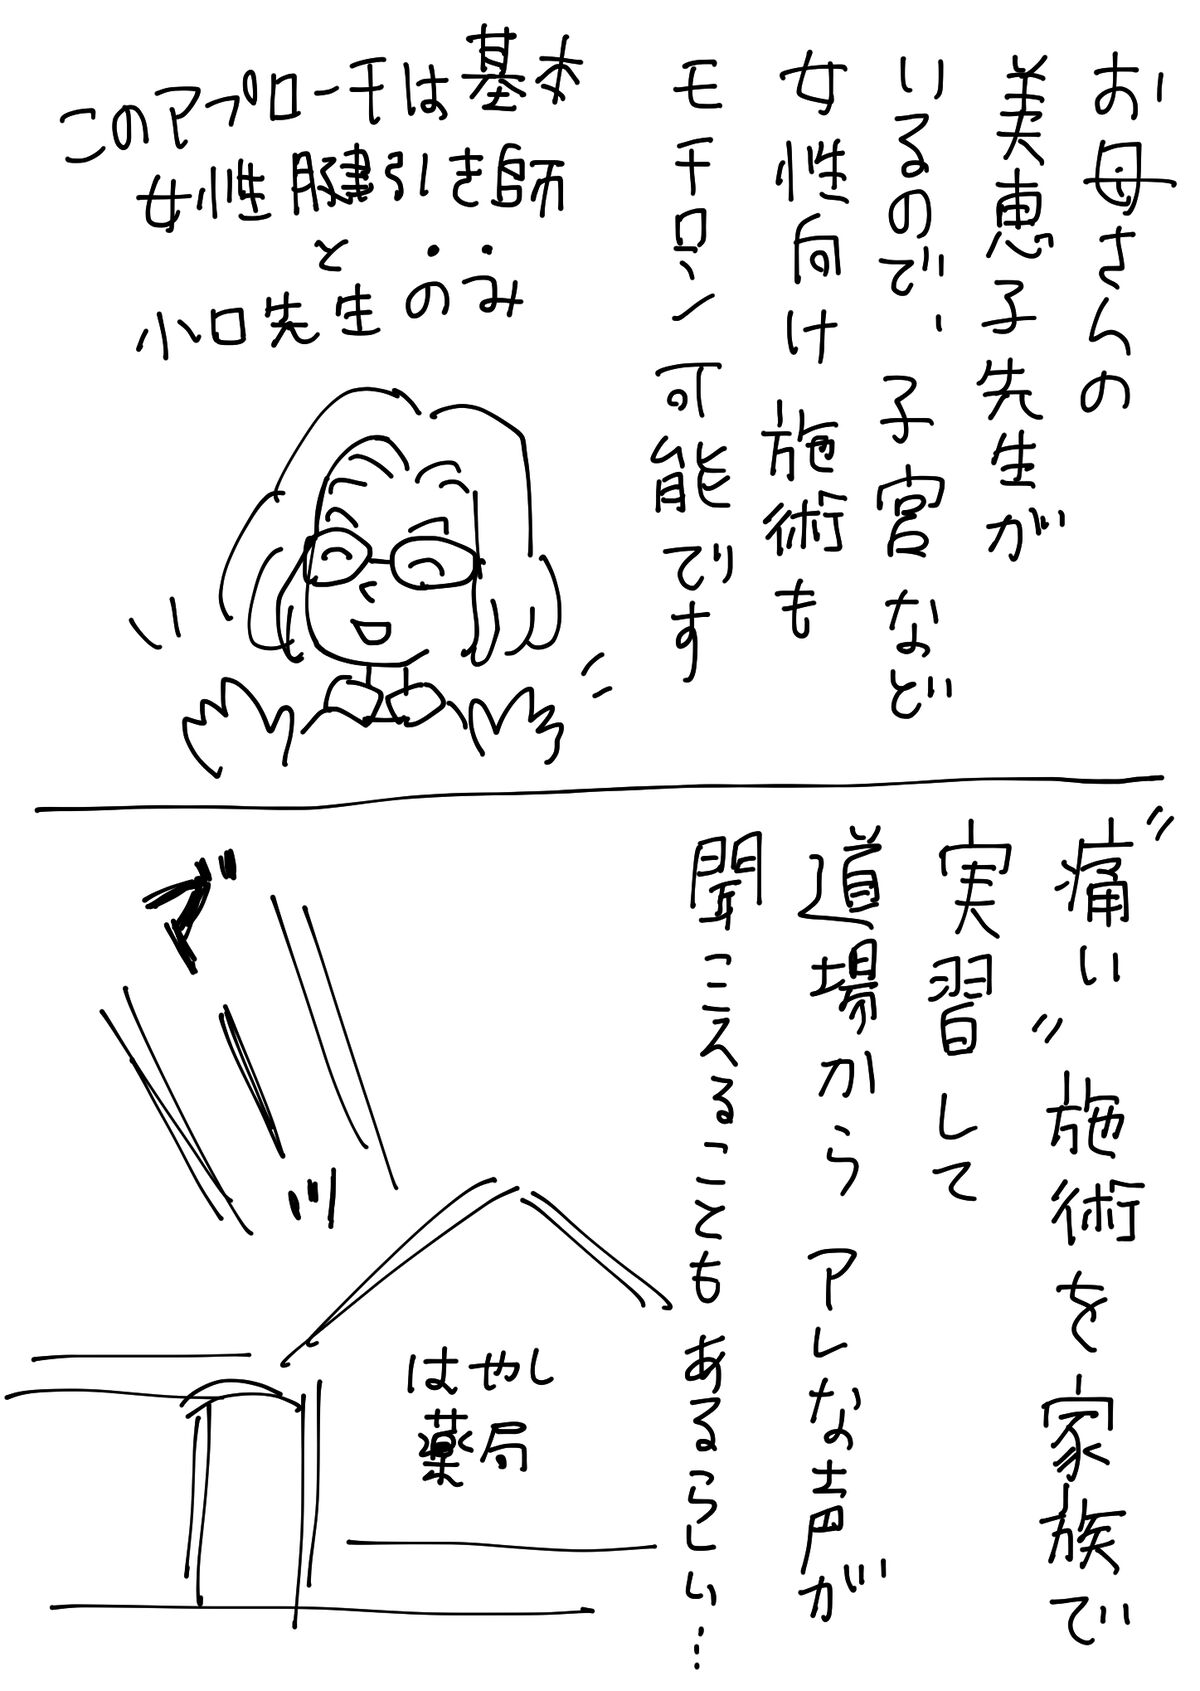 お母さんの
美恵子先生が
いるので、子宮など
女性向け施術も
モチロン可能です
このアプローチは基本
女性腱引き師
と
小口先生のみ
〝痛い〟施術を家族で
実習して
道場からアレな声が
聞こえることもあるらしい…
はやし
薬局